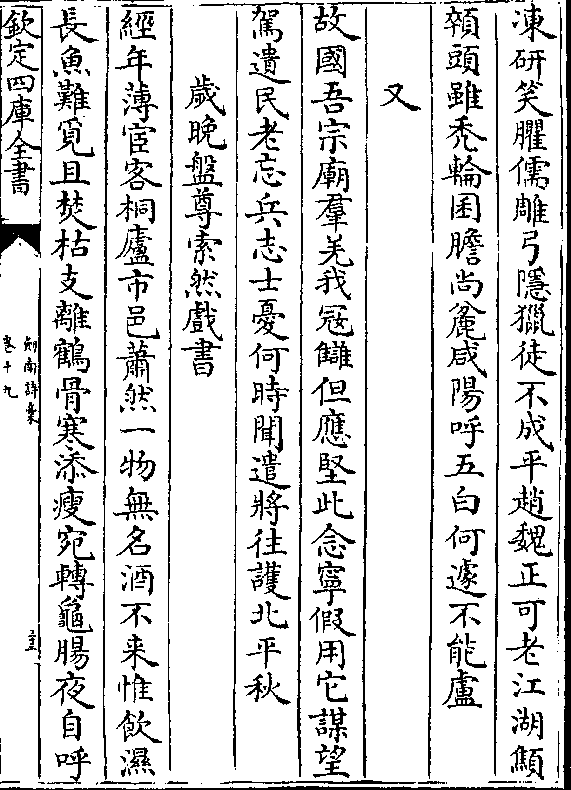 湅研笑臞儒雕弓隱獵徒不成平趙魏正可老江湖顦
顇頭雖禿輪囷膽尚麄咸陽呼五白何遽不能盧
又
故國吾宗廟羣羌我冦讎但應堅此念寧假用它謀望
駕遺民老忘兵志士憂何時聞遣將往䕶北平秋
歳晚盤尊索然戲書
經年薄宦客桐廬市邑蕭然一物無名酒不来惟飲濕
長魚難覔且焚枯支離鶴骨寒添瘦宛轉龜腸夜自呼
欽定四庫全書
劍南詩稾
卷十九